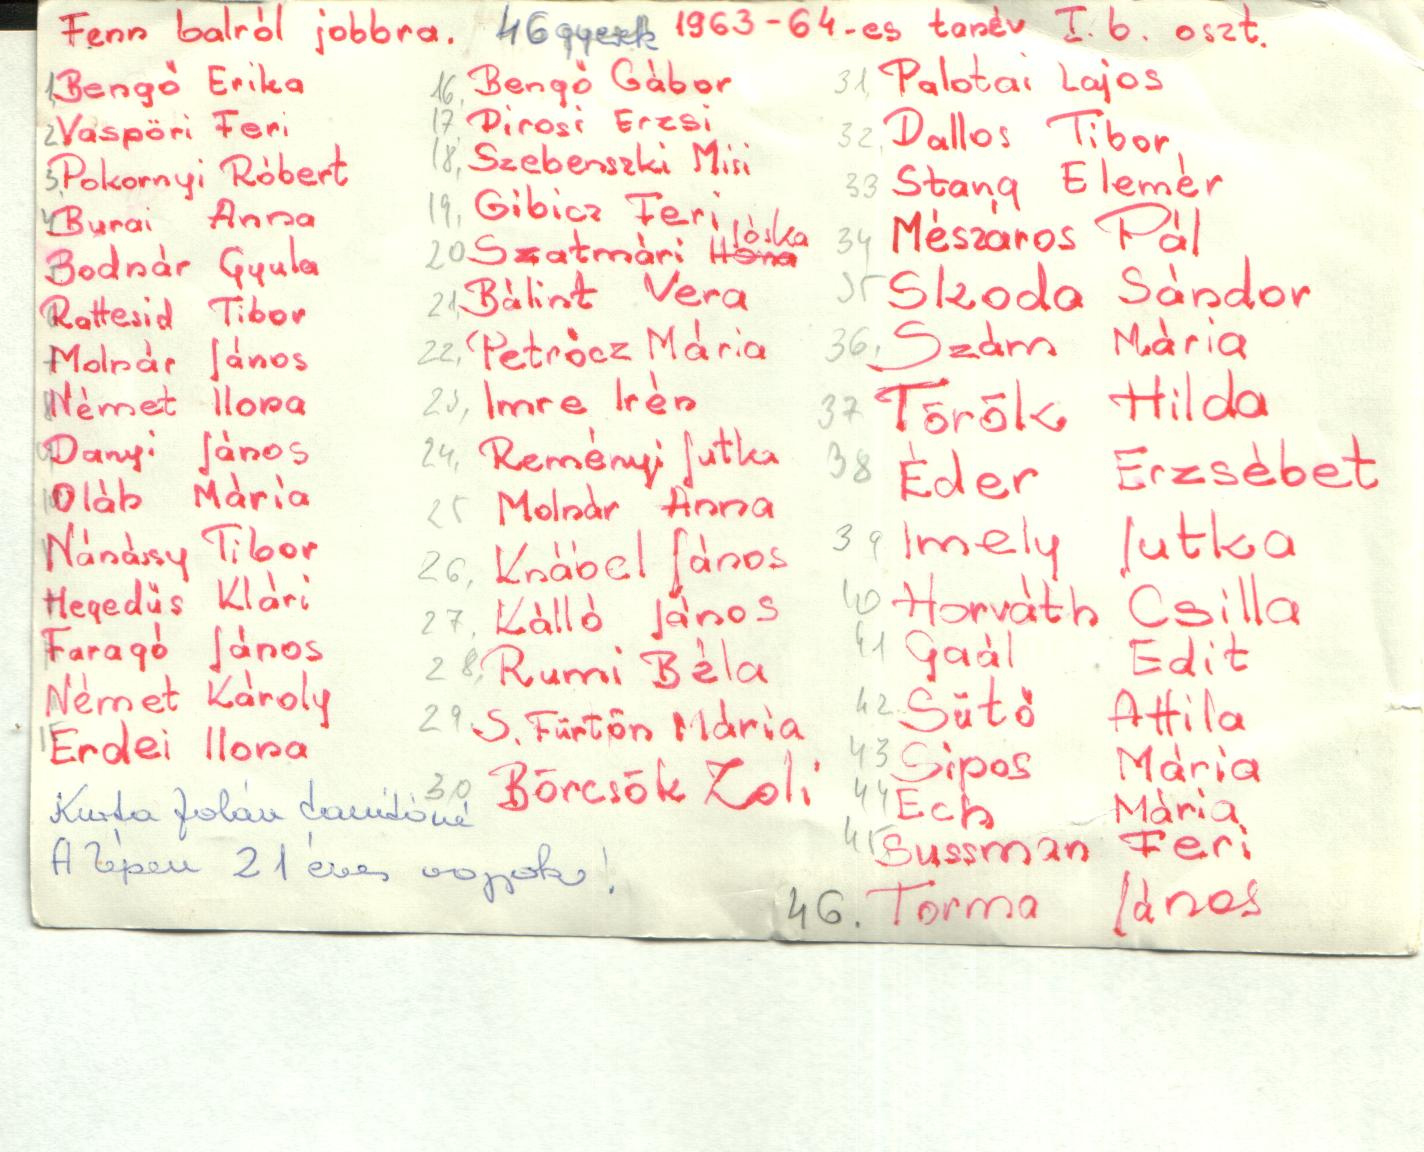 Fenn balról jobbra. 46 gyerek 1963-64-es tanév I. b. oszt.
1, Bengő Erika
2, Vaspöri Feri
3, Pokornyi Róbert
4, Burai Anna
Bodnár Gyula
Rattesid Tibor
Molnár János
Német Ilona
Danyi János
Oláh Mária
Nánássy Tibor
Hegedüs Klári
Faragó János
Német Károly
15 Erdei Ilona
16, Bengő Gábor
17, Pirosi Erzsi
18, Szebenszki Misi
19, Gibicz Feri
20 Szatmári Jóska
21, Bálint Vera
22, Petrócz Mária
23, Imre Irén
24, Reményi Jutka
25 Molnár Anna
26, Knábel János
27, Kálló János
28, Rumi Béla
29, S. Fürtön Mária
30, Börcsök Zoli
31, Palotai Lajos
32, Dallos Tibor
33 Stang Elemér
34 Mészáros Pál
35 Skoda Sándor
36, Szám Mária
37 Törők Hilda
38 Éder Erzsébet
39 Imely Jutka
40 Horváth Csilla
41 Gaál Edit
42 Sütő Attila
43 Sipos Mária
44 Ech Mária
45 Sussman Feri
46. Torma János
Kurta Jolán tanítóné
A képen 21 éves vagyok!